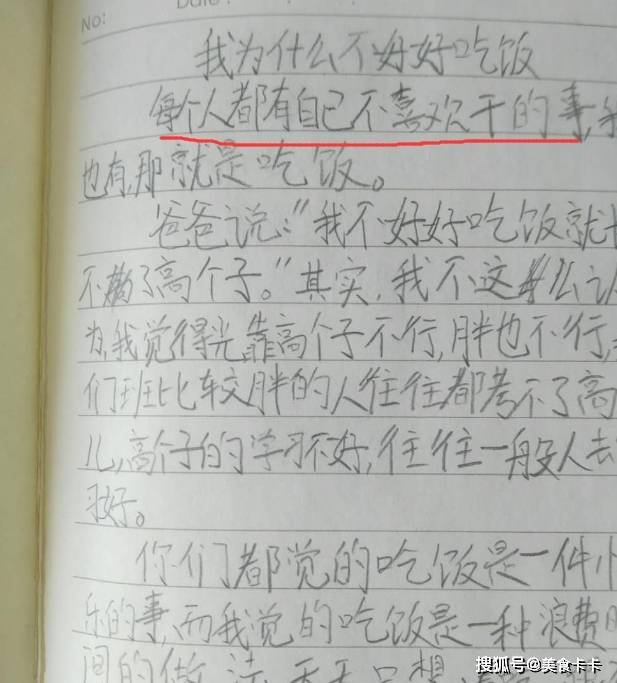 No:
Date:
我为什么不好好吃饭
每个人都有自己不喜欢干的事,
也有,那就是吃饭。
爸爸说:"我不好好吃饭就
不了高个子。"其实,我不这么认
为,我觉得光靠高个子不行,胖也不行,
们班比较胖的人往往都考不了高
儿,高个子的学习不好,往往一般人
习好。
你们都觉的吃饭是一件
乐的事,而我觉的吃饭是一种浪费时
间的做法,天天只想
搜狐号@美食卡卡